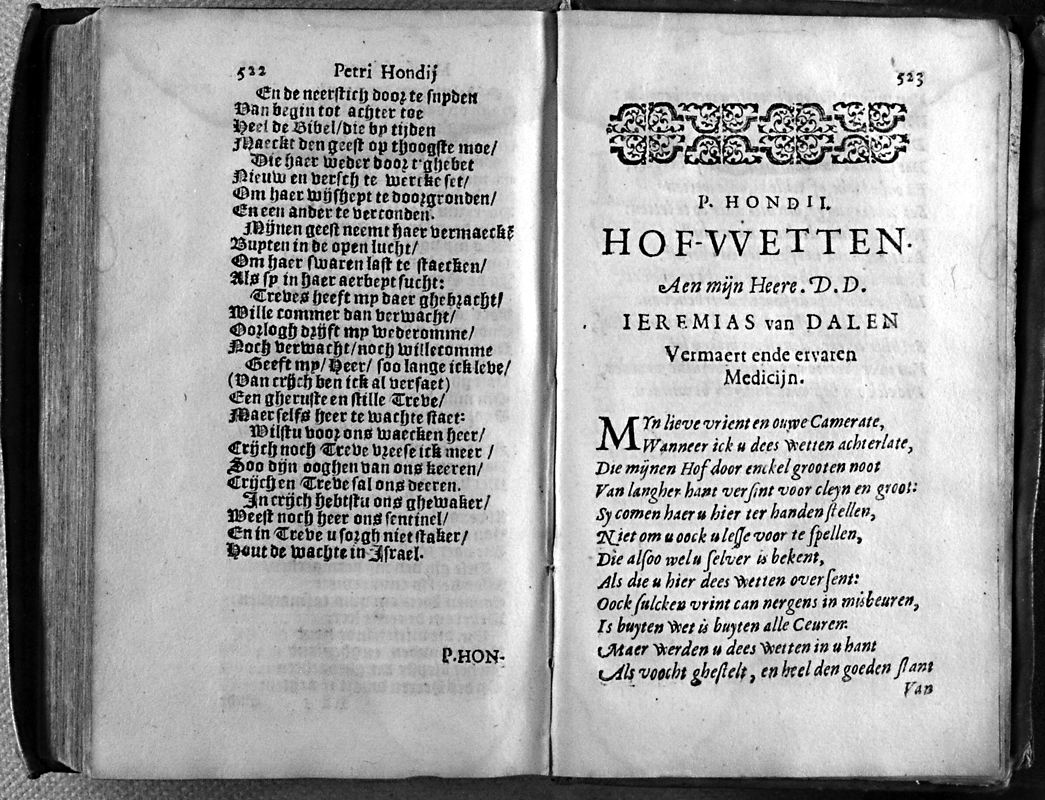 522 Petri Hondij
En de neerstich door te snyden
Van begin tot achter toe
Heel de Bibel/die by tijden
Maeckt den geest op thoogste moe/
Die haer weder door t'ghebet
Nieuw en versch te wercke set/
Om haer wijsheyt te doorgronden/
En een ander te verconden.
Mijnen geest neemt haer vermaeckē
Buyten in de open lucht/
Om haer swaren last te staecken/
Als sy in haer aerbeyt sucht:
Treves heeft my daer ghebracht/
Wille commer dan verwacht/
Oorlogh drijft my wederomme/
Noch verwacht/noch willecomme
Geeft my/Heer/ soo lange ick leve/
(Van crijch ben ick al versaet)
Een gheruste en stille Treve/
Maer selfs heer te wachte staet:
Wilstu voor ons waecken heer/
Crijch noch Treve vreese ick meer /
Soo dijn ooghen van ons keeren/
Crijch en Treve sal ons deeren.
In crijch hebtstu ons ghewaker/
Weest noch heer ons sentinel/
En in Treve u sorgh niet staker/
Hout de wachte in Israel.
P. HON-
523
P. HONDII.
HOF-VVETTEN.
Aen mijn Heere. D. D.
IEREMIAS van DALEN
Vermaert ende ervaren
Medicijn.
MYn lieve vrient en ouwe Camerate,
Wanneer ick u dees wetten achterlate,
Die mijnen Hof door enckel grooten noot
Van langher hant versint voor cleyn en groot:
Sy comen haer u hier ter handen stellen,
Niet om u oock u lesse voor te spellen,
Die alsoo wel u selver is bekent,
Als die u hier dees wetten over sent:
Oock sulcken vrint can nergens in misbeuren,
Is buyten wet is buyten alle Ceuren:
Maer werden u dees wetten in u hant
Als voocht ghestelt, en heel den goeden stant
Van